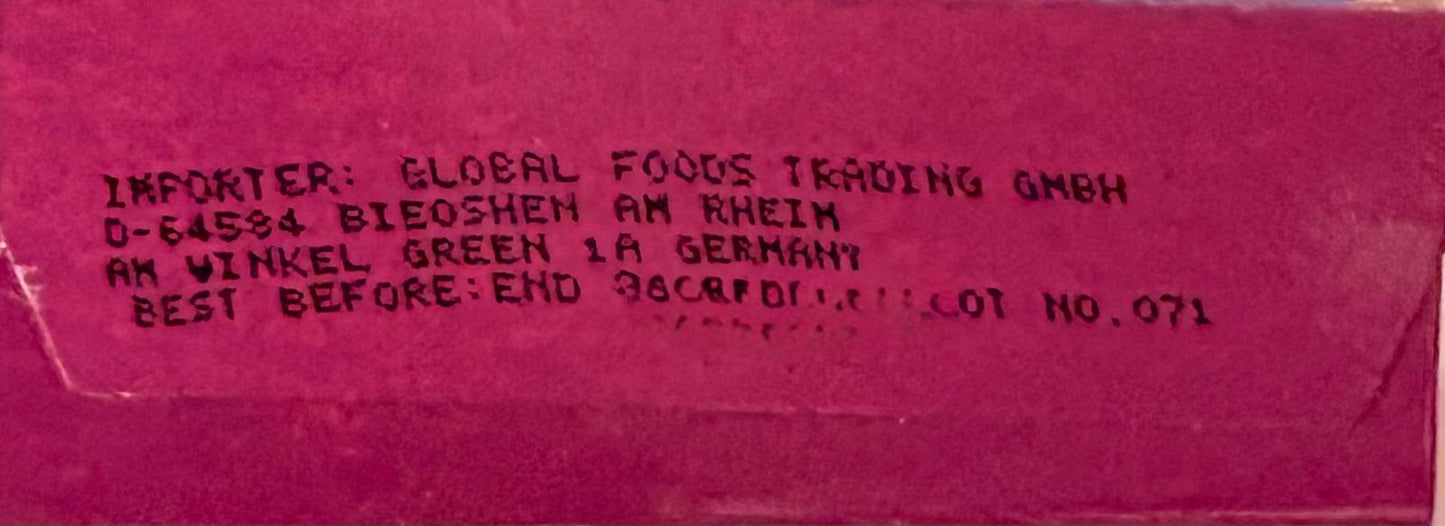 IMPORTER: GLOBAL FOODS TRADING GMBH
D-64584 BIEOSHEM AM RHEIM
AM WINKEL GREEN 1A GERMANY
BEST BEFORE:END LOT NO.071